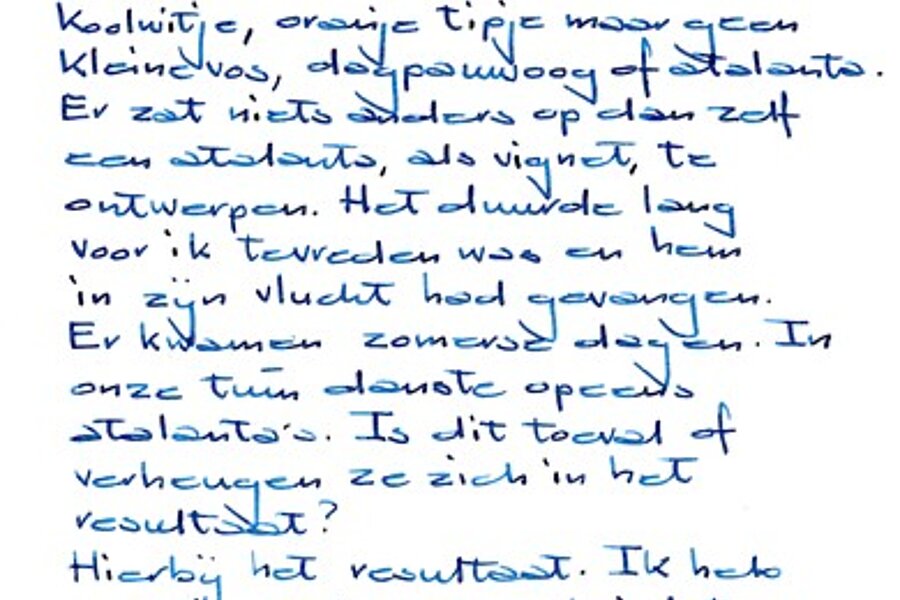 Koolwitje, oranje tipje maar geen
kleine vos, dagpauwoog of atalanta.
Er zat niets anders op dan zelf
een atalanta, als vignet, te
ontwerpen. Het duurde lang
voor ik tevreden was en hem
in zijn vlucht had gevangen.
Er kwamen zomerse dagen. In
onze tuin danste opeens
atalanta's. Is dit toeval of
verheugen ze zich in het
resultaat?
Hierbij het resultaat. Ik heb